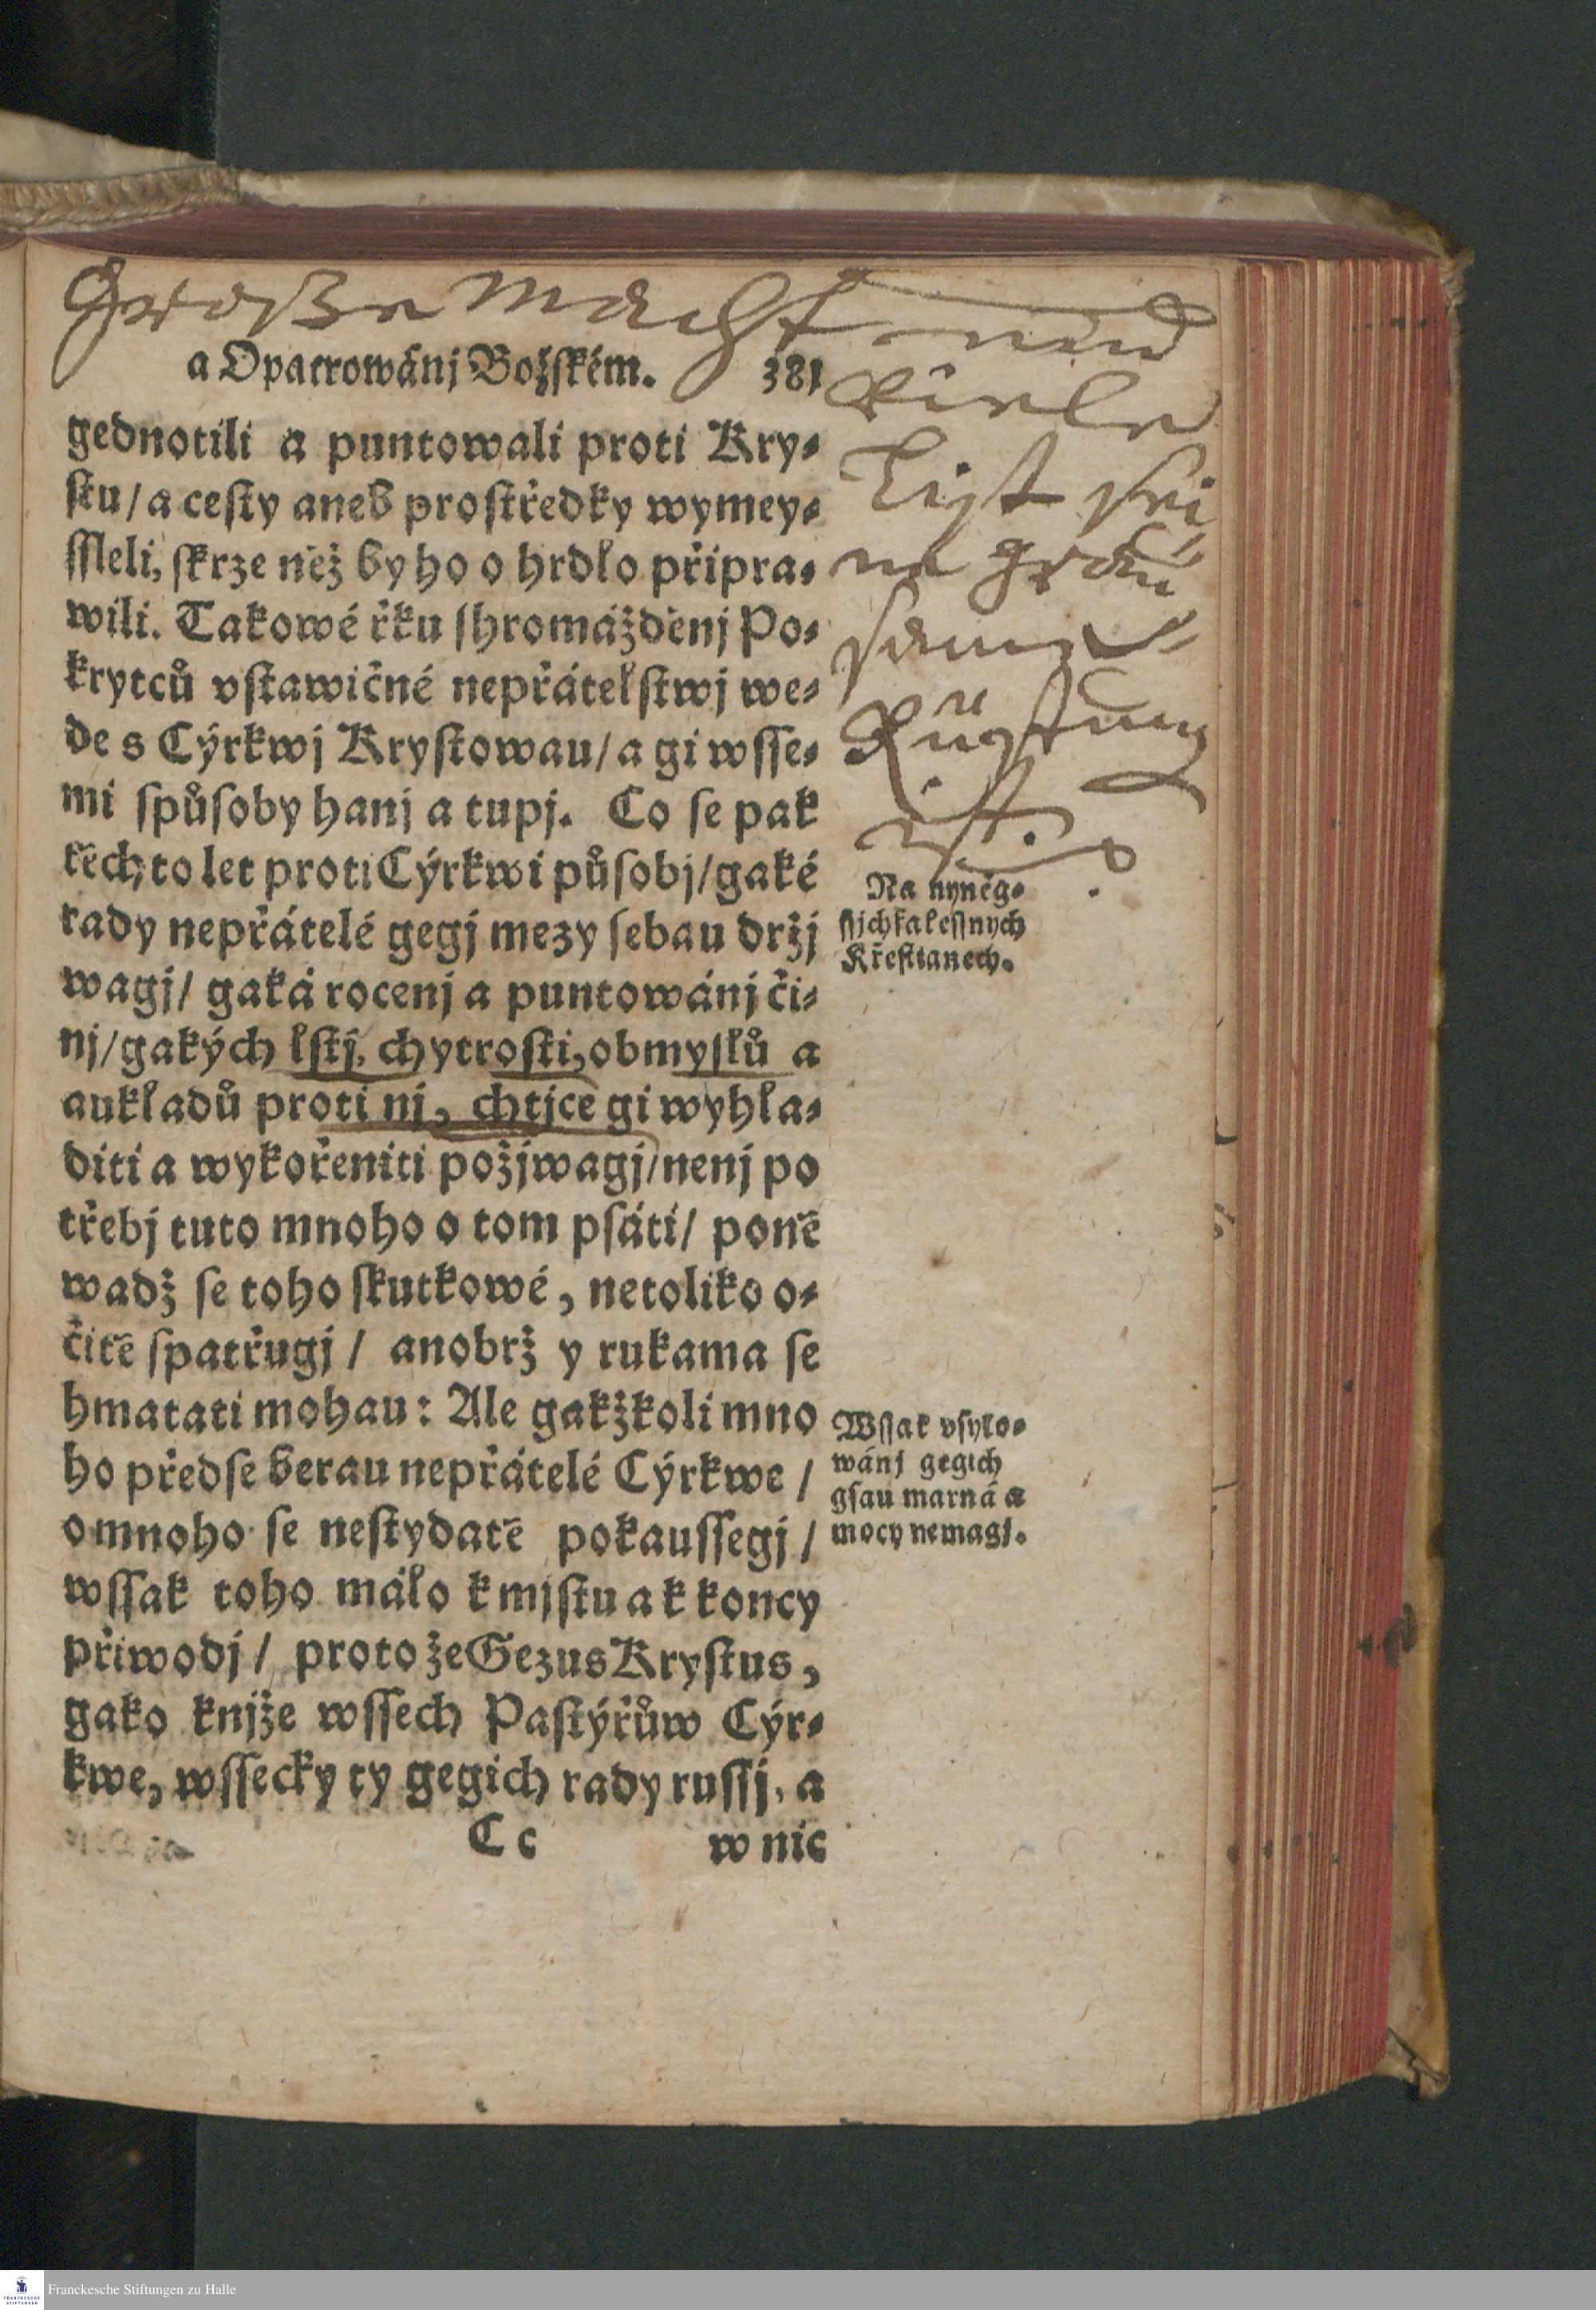 Große Macht und
viele
List sei
ne grau
same
Rüstung
ist.
a Opatrowánj Božſkém. 381
gednotili a puntowali proti Kry⸗
ſtu / a ceſty aneb proſtředky wymey⸗
ſſleli, ſkrze něž by ho o hrdlo připra⸗
wili. Takowé řku ſhromážděnj Po⸗
krytců vſtawičné nepřátelſtwj we⸗
de s Cýrkwj Kryſtowau / a gi wſſe⸗
mi ſpůſoby hanj a tupj. Co ſe pak
těchto let proti Cýrkwi půſobj / gaké
rady nepřátelé gegj mezy ſebau držj
wagj / gaká rocenj a puntowánj či⸗
nj / gakých lſtj, chytroſti, obmyſlů a
aukladů proti nj, chtjce gi wyhla⸗
diti a wykořeniti požjwagj / nenj po
třebj tuto mnoho o tom pſáti / poně
wadž ſe toho ſkutkowé, netoliko o⸗
čitě ſpatřugj / anobrž y rukama ſe
hmatati mohau : Ale gakžkoli mno
ho předſe berau nepřátelé Cýrkwe /
o mnoho ſe neſtydatě pokauſſegj /
wſſak toho málo k mjſtu a k koncy
přiwodj / proto že Gezus Kryſtus,
gako knjže wſſech Paſtýřůw Cýr⸗
kwe, wſſecky ty gegich rady ruſſj, a
Cc w nic
Na nyněg⸗
ſſjch falеſſnych
Křeſtianech.
Wſſak vſylo⸗
wánj gegich
gſau marná a
mocy nemagj.
Franckesche Stiftungen zu Halle
FRANCKESCHE
STIFTUNGEN